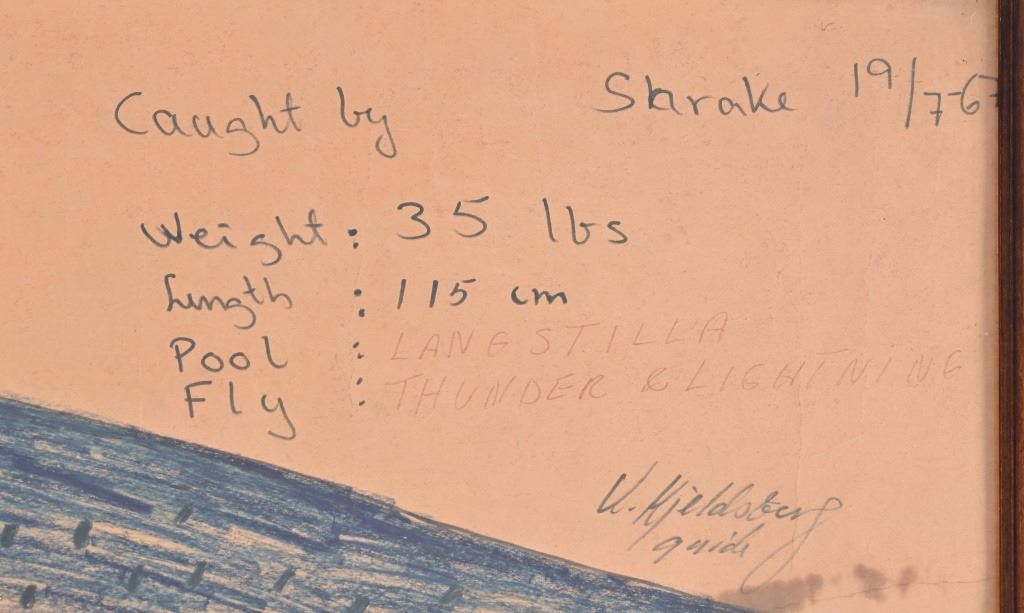 Caught by Starake 19/7-67
Weight : 35 lbs
Length : 115 cm
Pool : LANGSTILLA
Fly : THUNDER & LIGHTNING
K. Kjeldsberg
guide